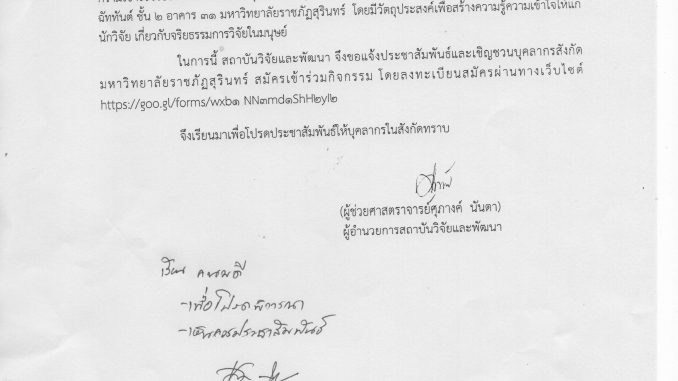 ฉัททันต์ ชั้น ๒ อาคาร ๓๑ มหาวิทยาลัยราชภัฏสุรินทร์ โดยมีวัตถุประสงค์เพื่อสร้างความรู้ความเข้าใจให้แก่
นักวิจัย เกี่ยวกับจริยธรรมการวิจัยในมนุษย์
ในการนี้ สถาบันวิจัยและพัฒนา จึงขอแจ้งประชาสัมพันธ์และเชิญชวนบุคลากรสังกัด
มหาวิทยาลัยราชภัฏสุรินทร์ สมัครเข้าร่วมกิจกรรม โดยลงทะเบียนสมัครผ่านทางเว็บไซต์
https://goo.gl/forms/wxb๑ NN๓md๑ShH๒yl๒
จึงเรียนมาเพื่อโปรดประชาสัมพันธ์ให้บุคลากรในสังกัดทราบ
(ผู้ช่วยศาสตราจารย์ศุภางค์ นันตา)
ผู้อำนวยการสถาบันวิจัยและพัฒนา
เรียน คณบดี
-เพื่อโปรดพิจารณา
-เห็นควรประชาสัมพันธ์